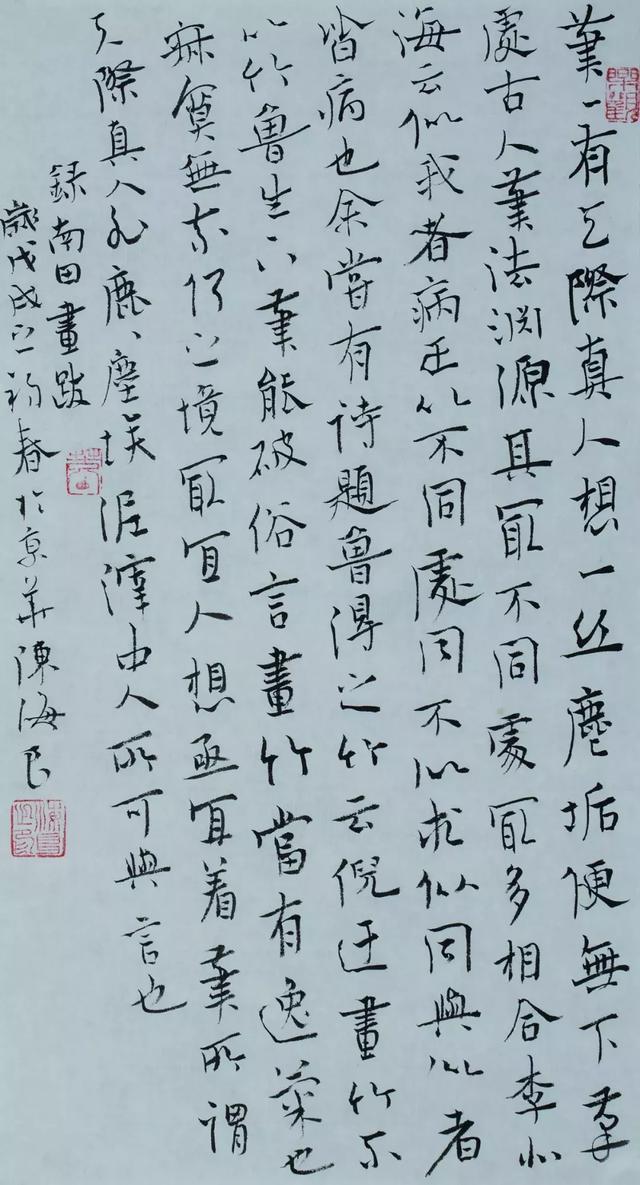 筆々有天際真人想一丝塵垢便無下筆
處古人筆法渊源其冣不同處冣多相合李北
海云似我者病正以不同處同不似求似同與似者
皆病也余嘗有诗題魯得之竹云倪迂畫竹不
似竹魯生下筆能破俗言畫竹當有逸氣也
寂寞無可奈何之境冣宜入想亟宜着筆所謂
天際真人非鹿々塵埃泥滓中人所可與言也
録南田畫跋
歲戊戌之初春於京華陳海良